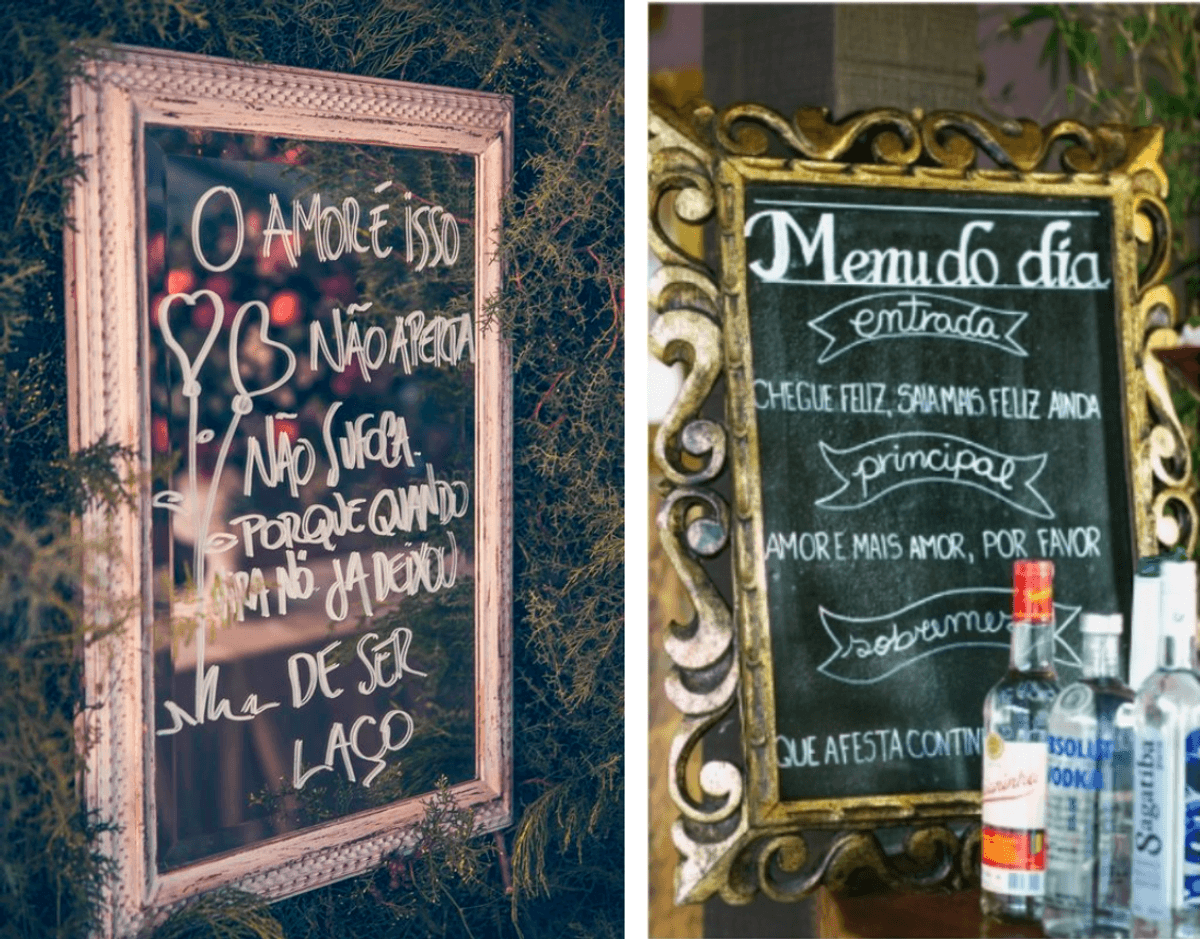 O AMOR É ISSO
NÃO APERTA
NÃO SUFOCA.
PORQUE QUANDO
VIRA NÓ. JÁ DEIXOU
DE SER
LAÇO
Menu do dia
entrada
CHEGUE FELIZ, SAIA MAIS FELIZ AINDA
principal
AMOR E MAIS AMOR, POR FAVOR
sobremes
QUE A FESTA CONTIN
ABSOLUT
VODKA
Sagatiba